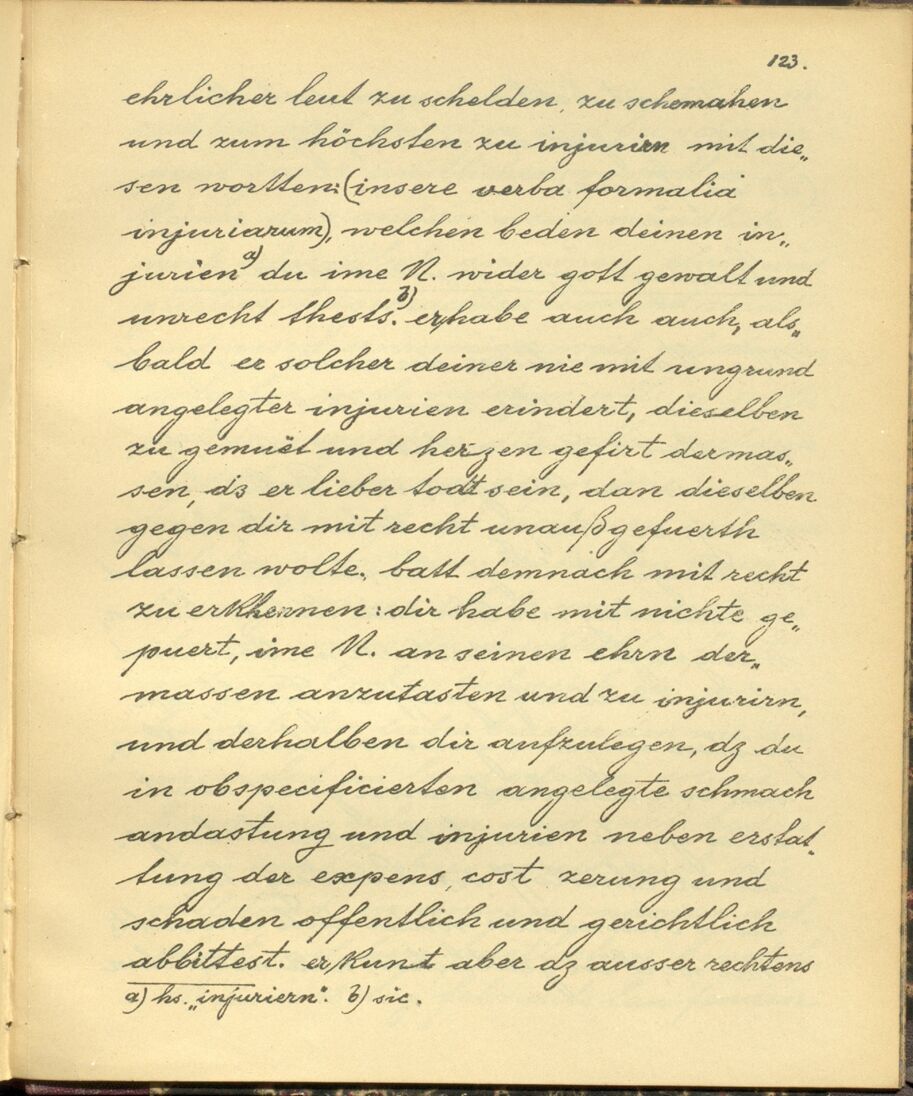 123.
ehrlicher leut zu schelden, zu schemahen
und zum höchsten zu injurirn mit die„
sen wortten: (insere verba formalia
injuriarum), welchen beden deinen in„
jurien a) du ime N. wider gott gewalt und
unrecht thests. b) er habe auch auch, als„
bald er solcher deiner nie mit ungrund
angelegter injurien erindert, dieselben
zu gemuët und herzen gefirt dermas„
sen, dz er lieber todt sein, dan dieselben
gegen dir mit recht unaußgefuerth
lassen wolte, batt demnach mit recht
zu erkhennen: dir habe mit nichte ge„
puert, ime N. an seinen ehrn der„
massen anzutasten und zu injurirn,
und derhalben dir aufzulegen, dz du
in obspecificierten angelegte schmach
andastung und injurien neben erstat„
tung der expens, cost zerung und
schaden offentlich und gerichtlich
abbittest. er kunt aber dz ausser rechtens
a) hs. „injuriern". b) sic.